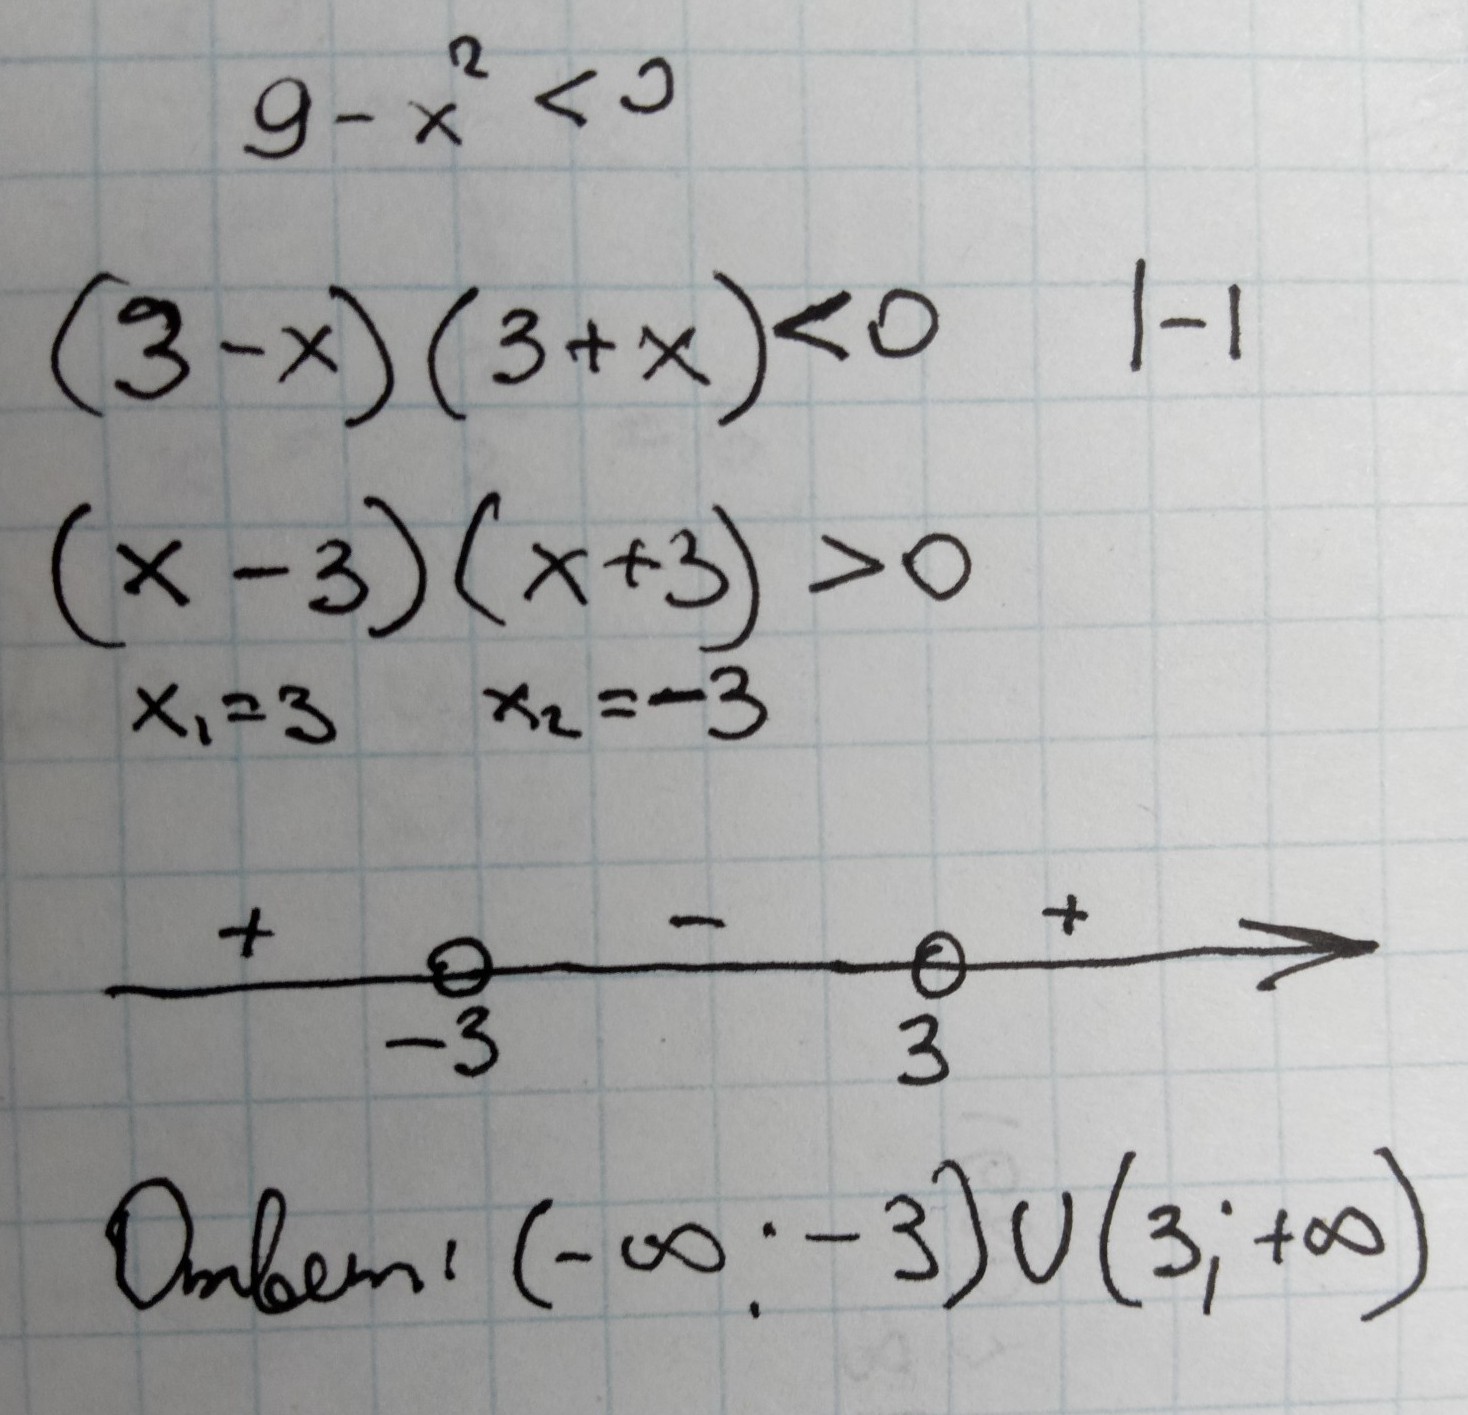 9 - x² < 0
(3 - x)(3 + x) < 0 | -1
(x - 3)(x + 3) > 0
x₁ = 3 x₂ = -3
+ - +
-3 3
Ответ: (-∞; -3) ∪ (3; +∞)